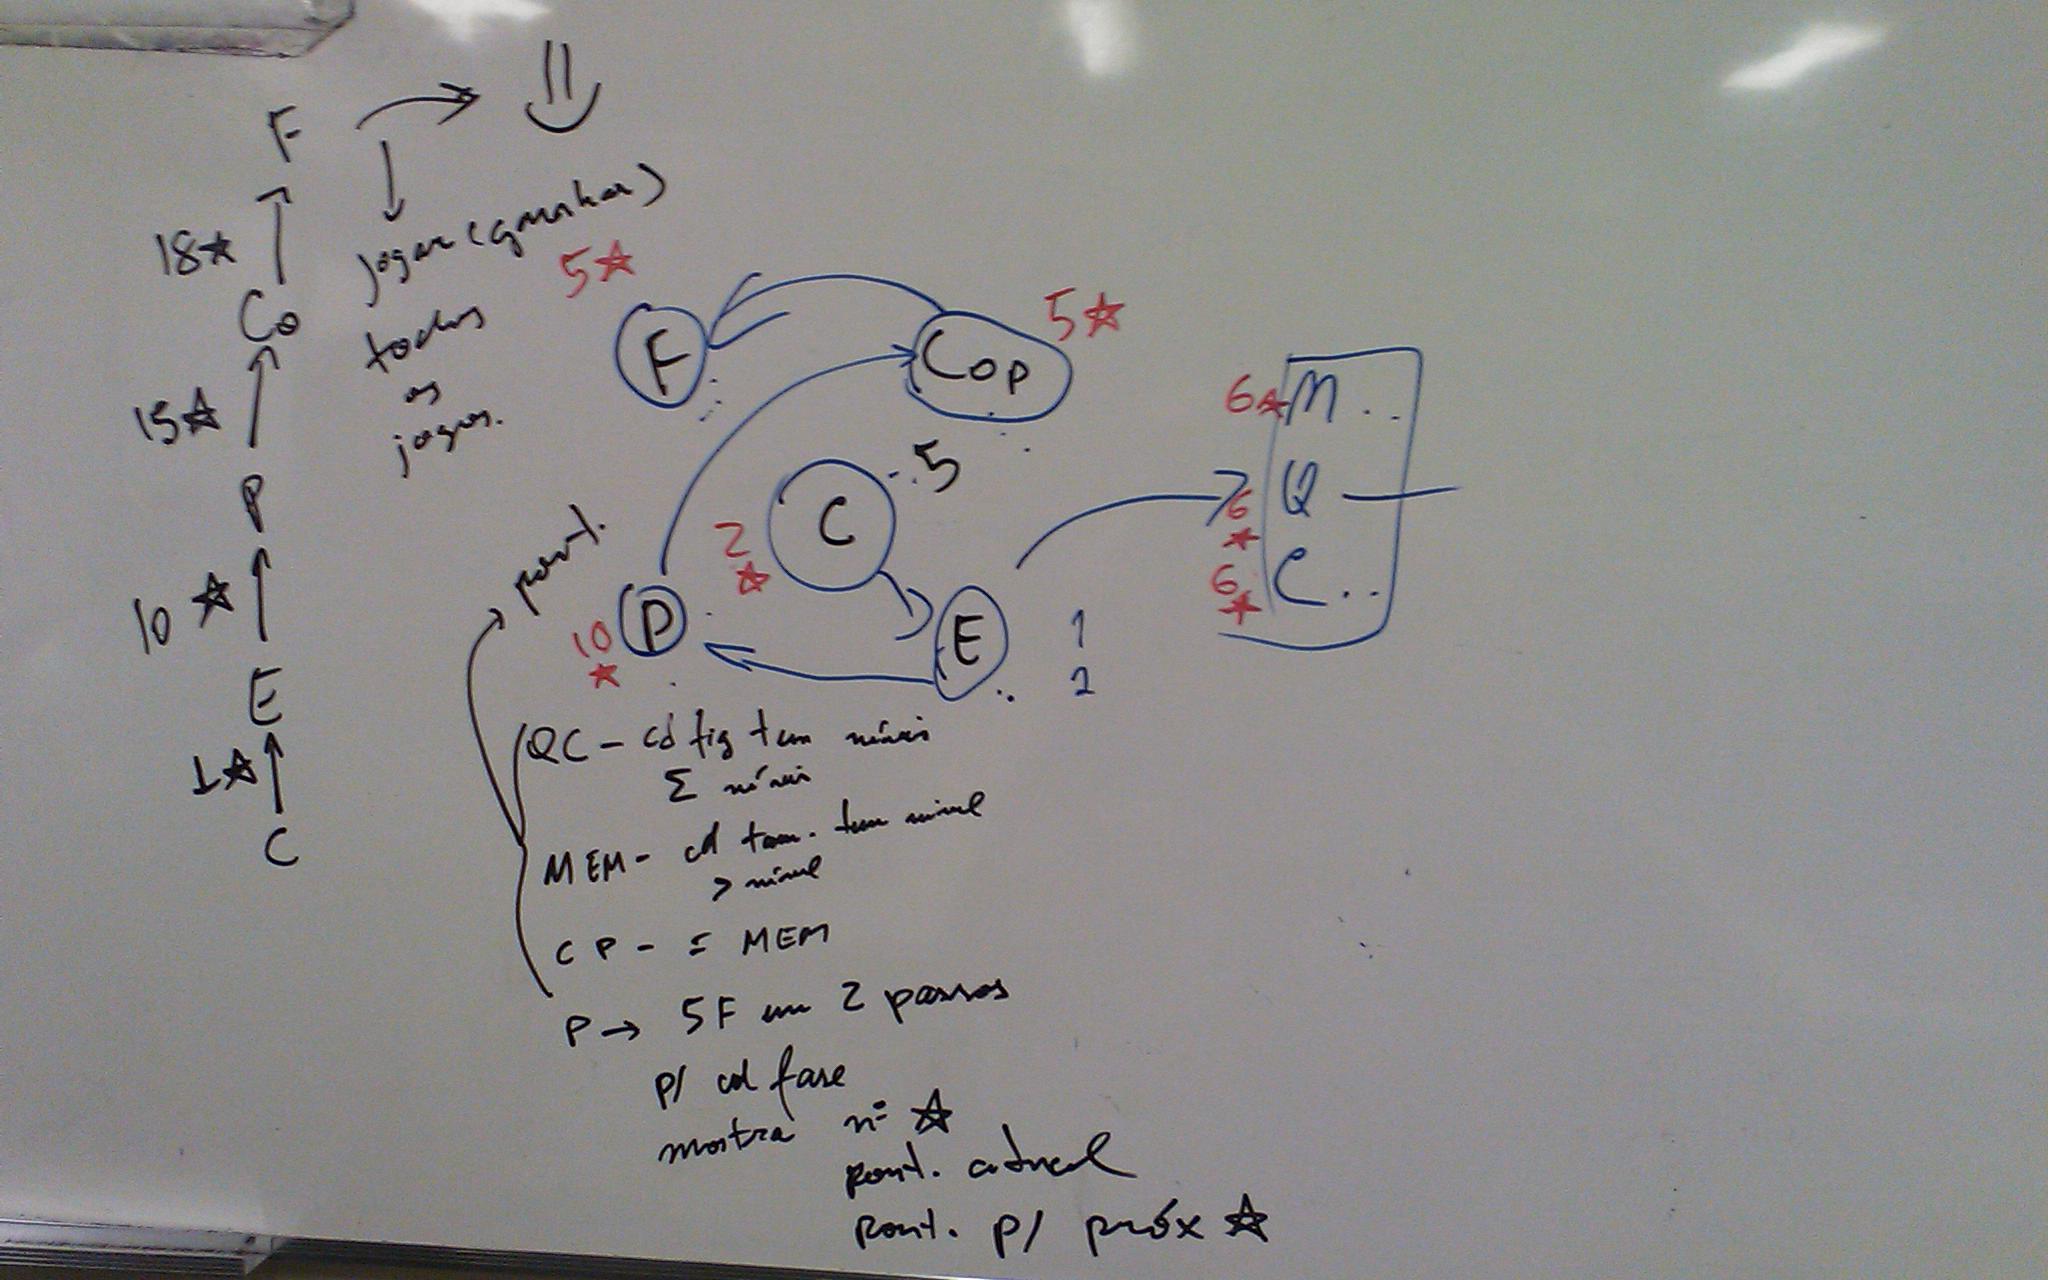 F
18☆
Co
15☆
P
10☆
E
1☆
C
jogar (ganhar)
todos
os
jogos.
5☆
F
Cop
5☆
C
5
2
☆
10
☆
P
E
1
2
6☆ M..
6
☆
Q
6
☆
C..
pont.
QC - cd fig tem níveis
Σ níveis
MEM - cd tam. tem nível
> nível
CP - = MEM
P → 5F em 2 passos
p/ cd fase
mostra nº ☆
pont. actual
pont. p/ próx ☆